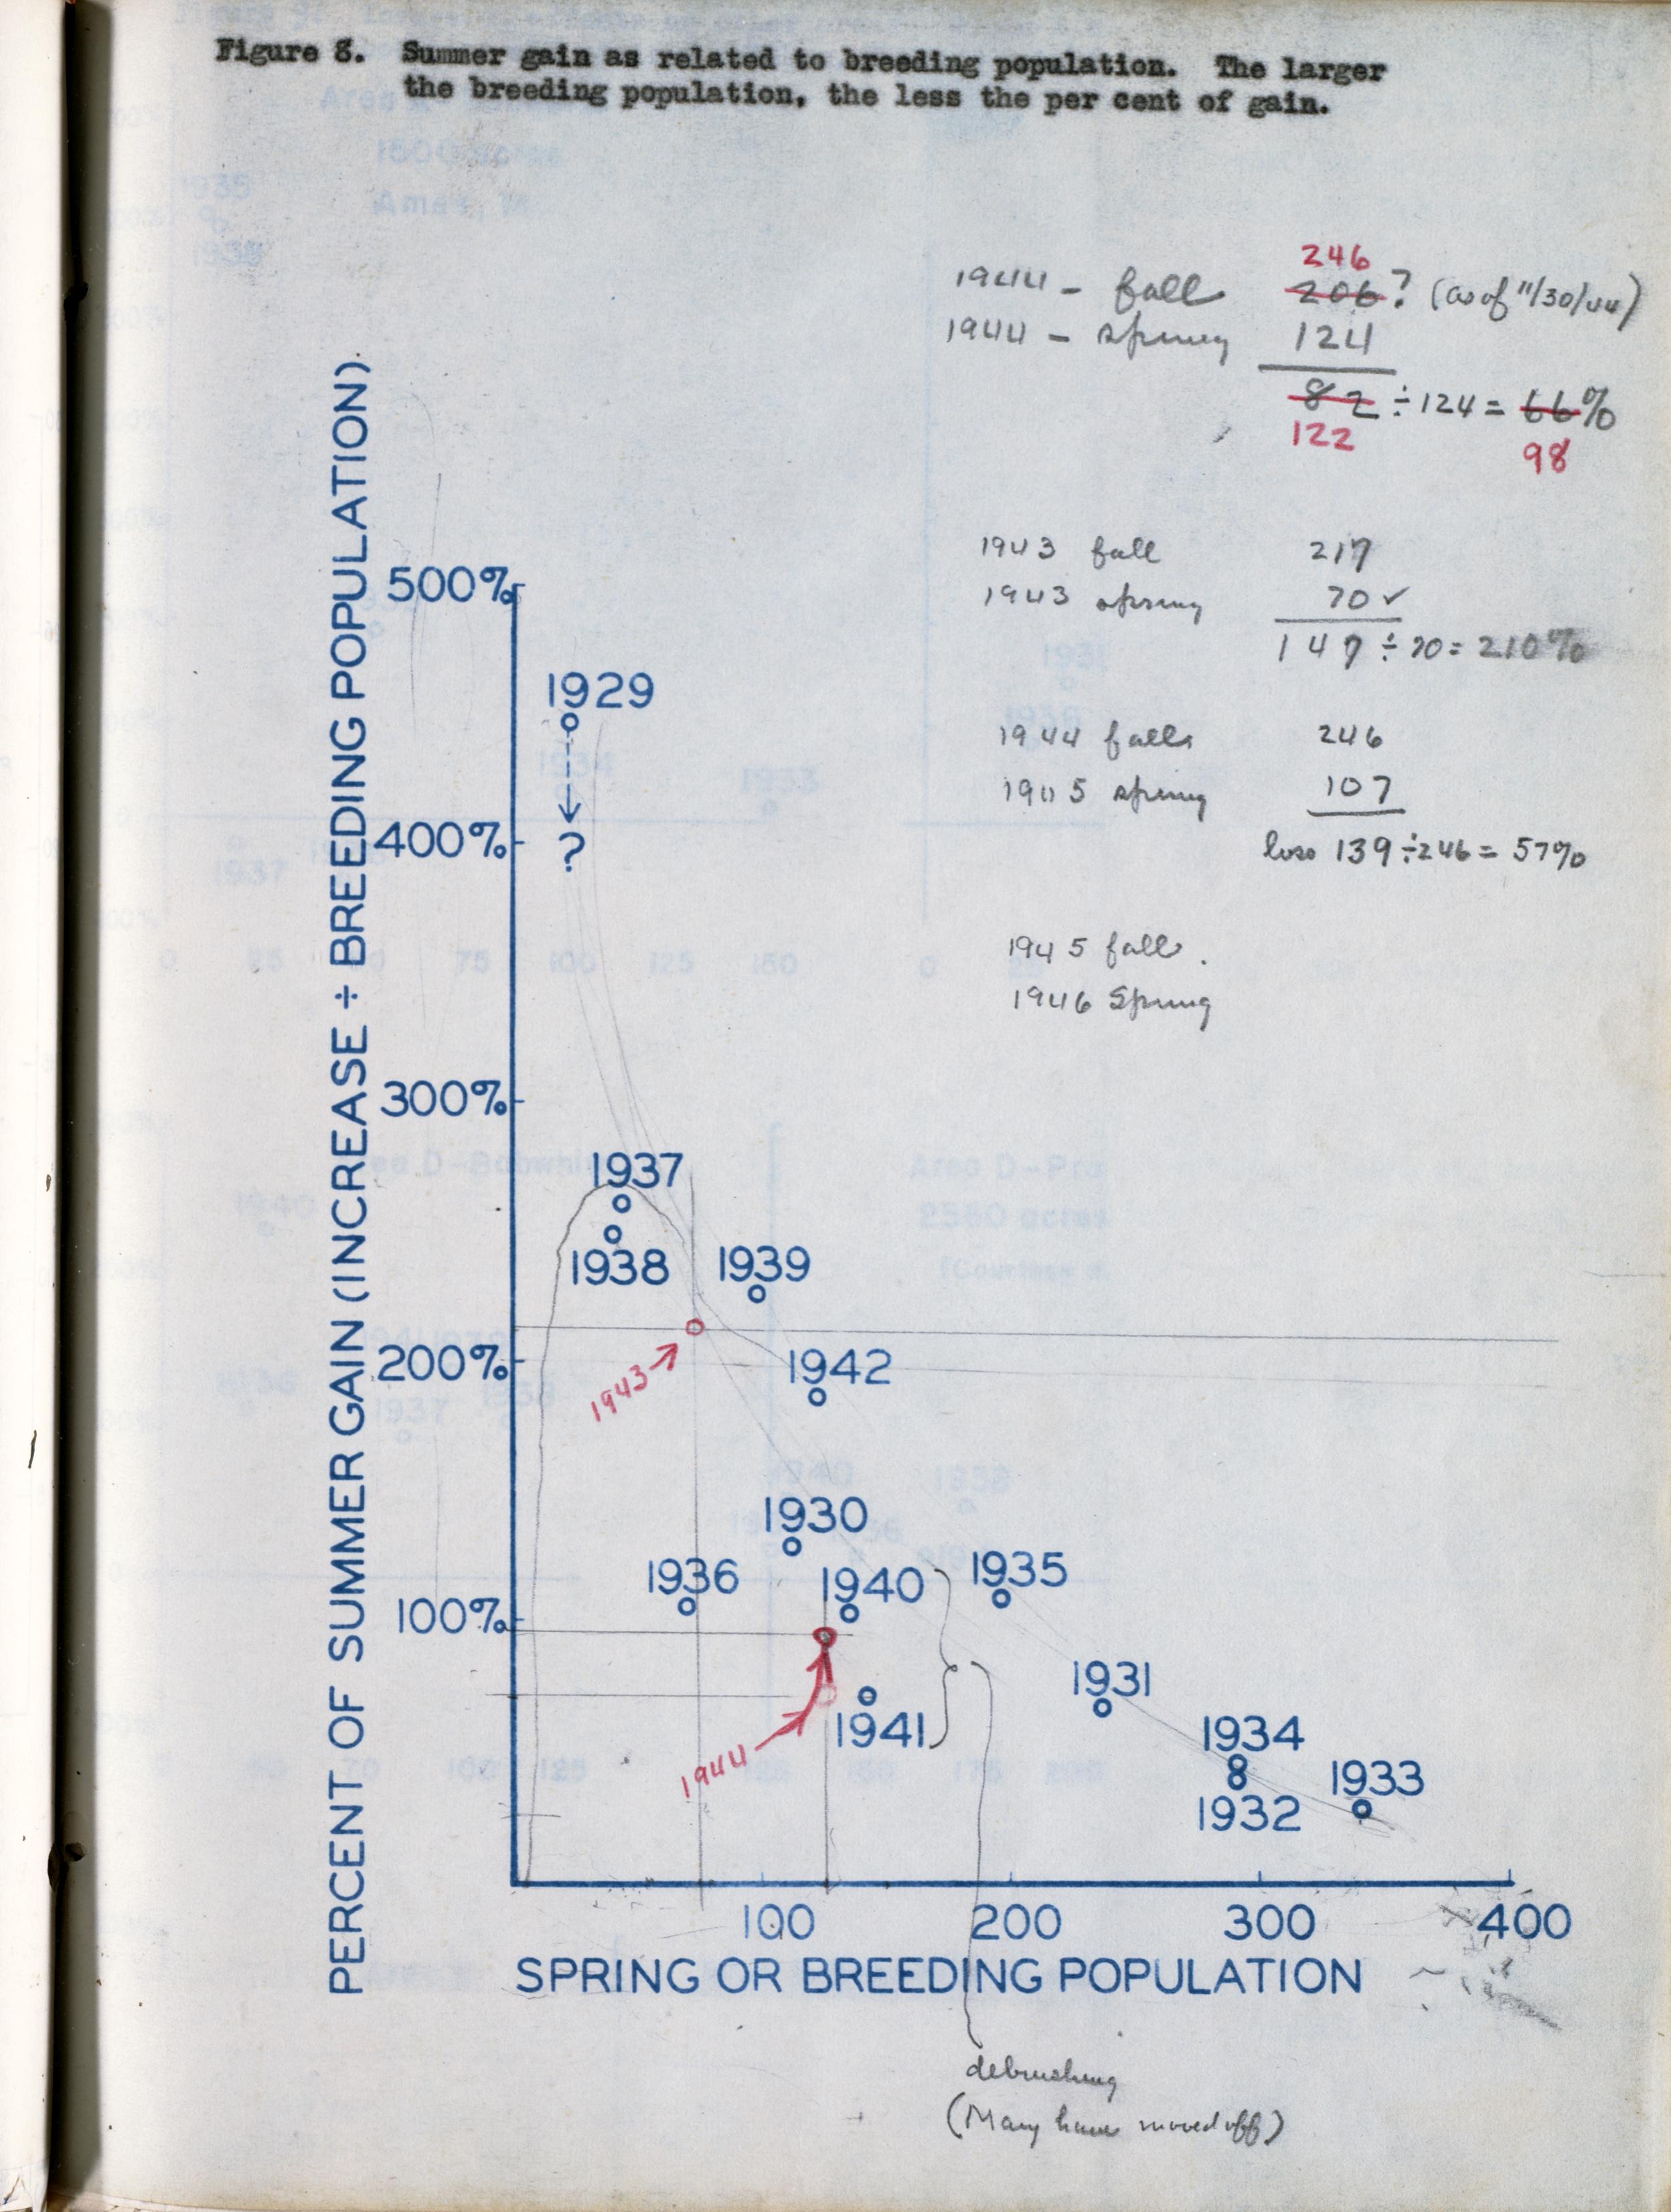 Figure 8. Summer gain as related to breeding population. The larger
the breeding population, the less the per cent of gain.
246
1944 - fall 206? (as of 11/30/44)
1944 - spring 124
82 ÷ 124 = 66%
122 98
1943 fall 217
1943 spring 70 ✓
147 ÷ 70 = 210%
1944 fall 246
1945 spring 107
loss 139 ÷ 246 = 57%
1945 fall.
1946 Spring
PERCENT OF SUMMER GAIN (INCREASE ÷ BREEDING POPULATION).
500%
1929
400%
?
300%
1937
1938
1939
200%
1943
1942
1930
1936
1940
1935
100%
1931
1941
1944
1934
1932
1933
100 200 300 400
SPRING OR BREEDING POPULATION
debrushing
(Many have moved off)